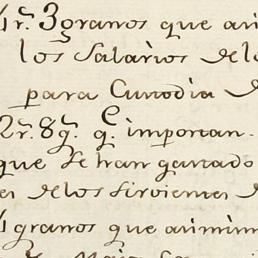 4 r.s 3 granos que an
los Salarios de lo
para Custodia d
2 r.s 8 g.s q.e importan.
que se han gastado
es de los sirvientes d
4 granos que asimism